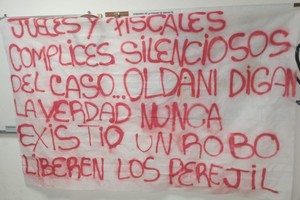 JUECES Y FISCALES
COMPLICES SILENCIOSOS
DEL CASO.. OLDANI DIGAN
LA VERDAD NUNCA
EXISTIO UN ROBO
LIBEREN LOS PEREJIL